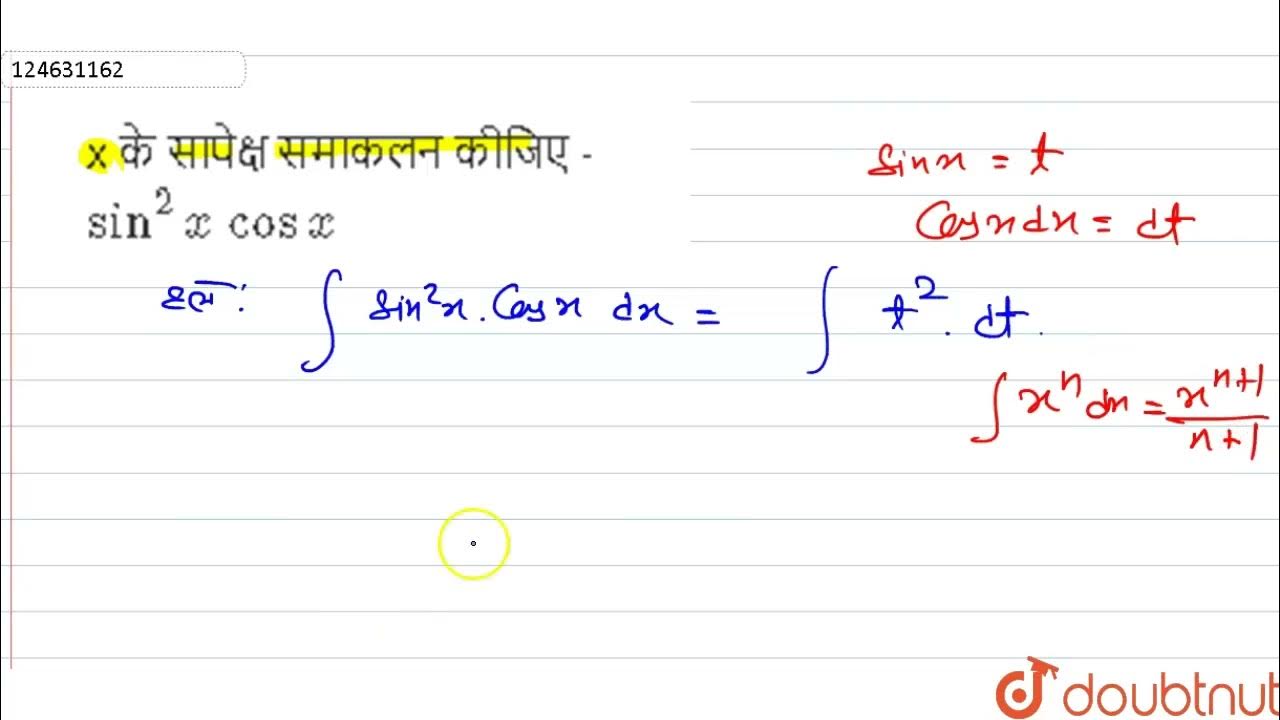 124631162
x के सापेक्ष समाकलन कीजिए -
sin² x cos x
sin x = t
cos x dx = dt
हल: ∫ sin²x . cos x dx = ∫ t² . dt .
∫ xⁿ dx = xⁿ⁺¹ / n+1
doubtnut